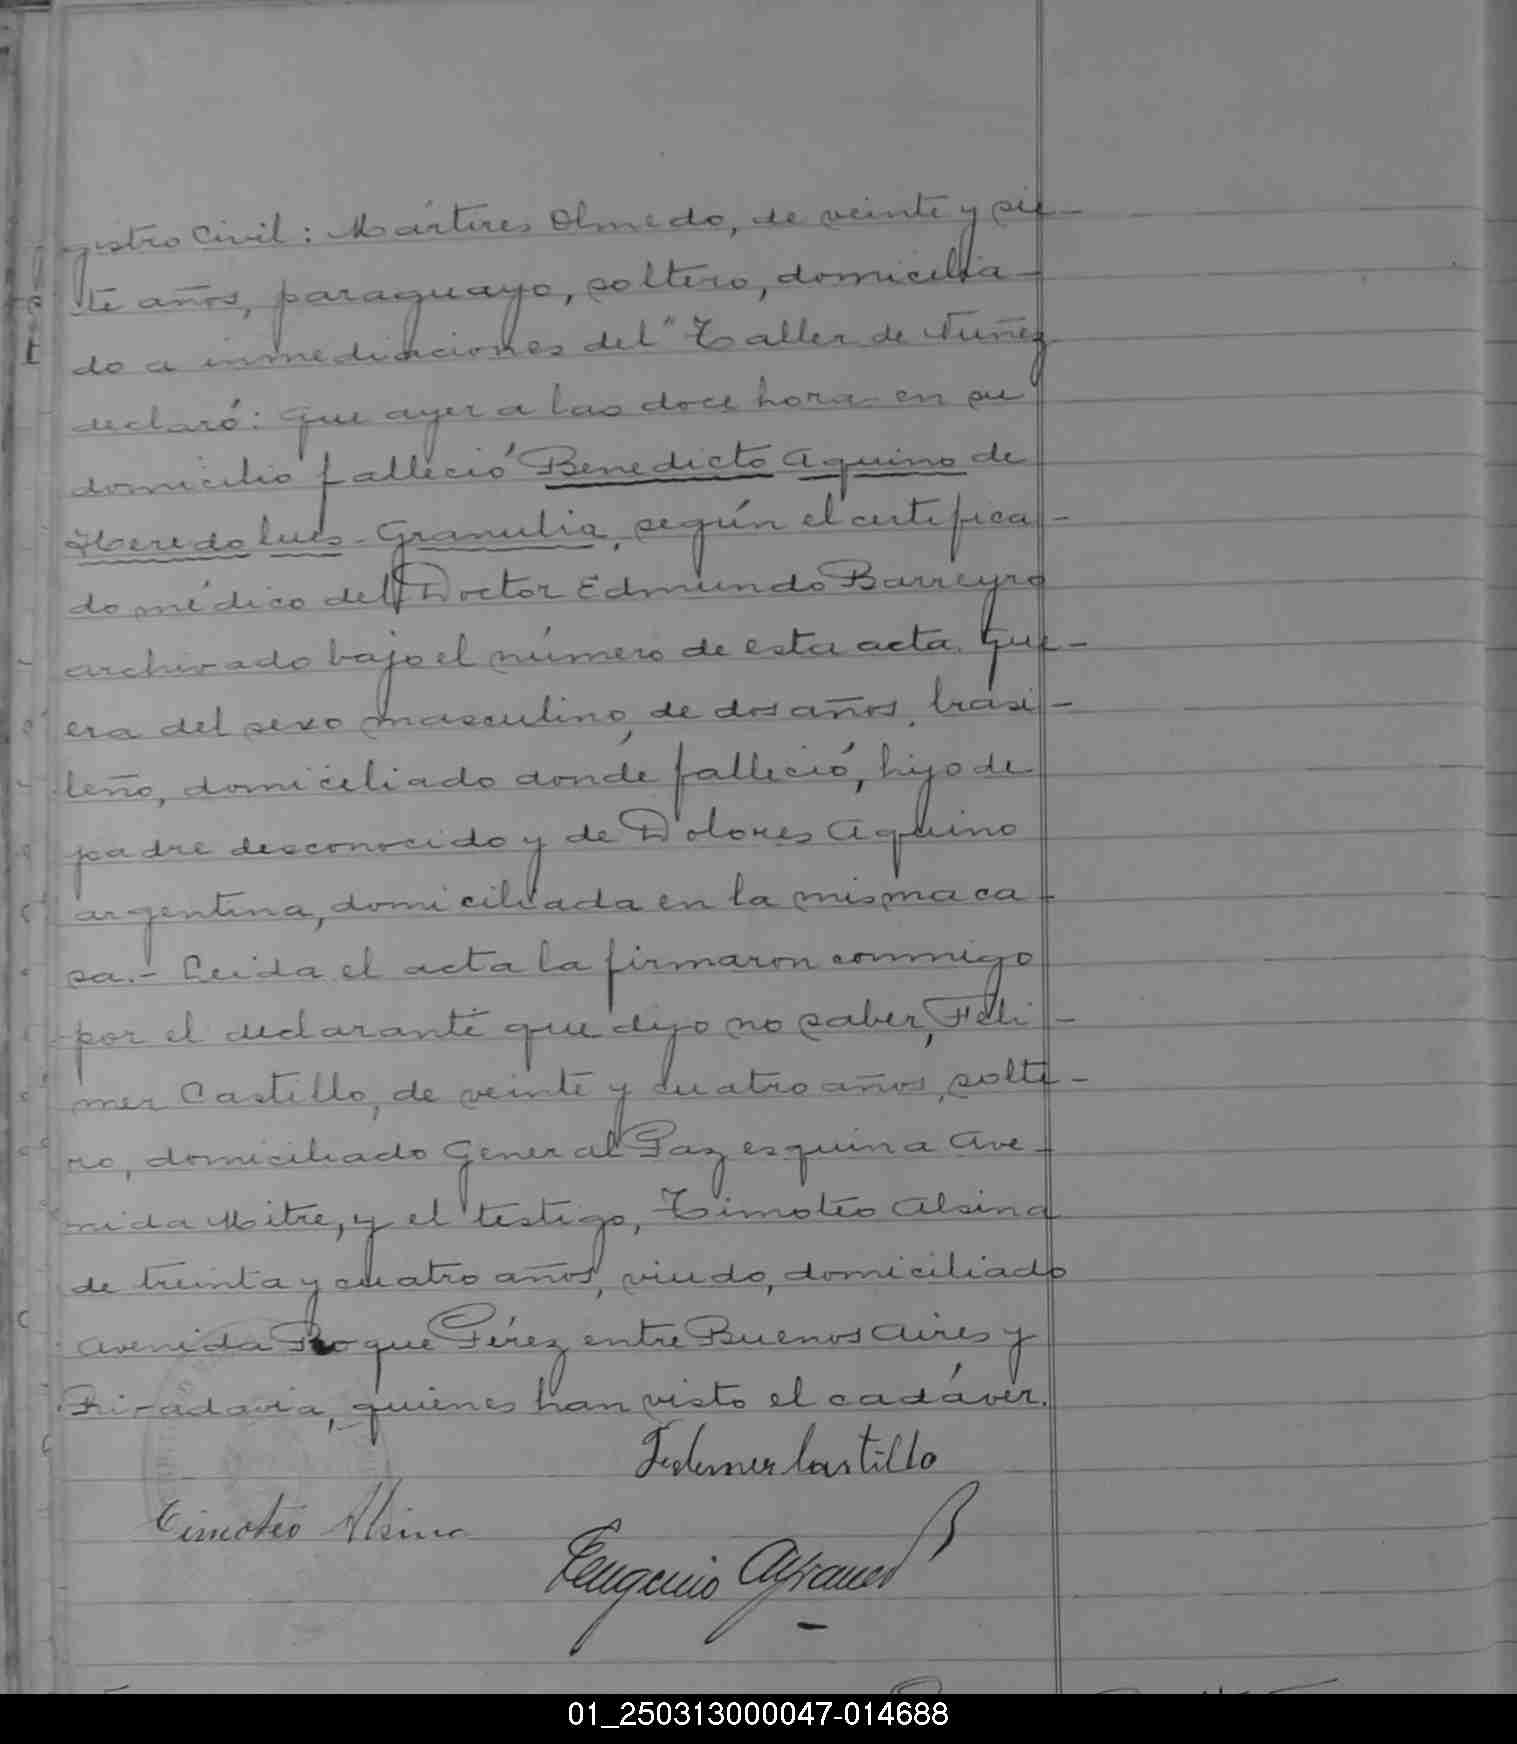 gistro Civil: Mártires Olmedo, de veinte y sie-
te años, paraguayo, soltero, domicilia-
do a inmediaciones del "Taller de Nuñez
declaró: Que ayer a las doce hora en su
domicilio falleció Benedicto Aquino de
Heredo lues - Granulia, según el certifica-
do médico del Doctor Edmundo Barreyro
archivado bajo el número de esta acta. Que-
era del sexo masculino, de dos años, brasi-
leño, domiciliado donde falleció, hijo de
padre desconocido y de Dolores Aquino
argentina, domiciliada en la misma ca-
sa.- Leida el acta la firmaron conmigo
por el declarante que dijo no saber, Feli-
mer Castillo, de veinte y cuatro años, solte-
ro, domiciliado General Paz esquina Ave-
nida Mitre, y el testigo, Timoteo Alsina
de treinta y cuatro años, viudo, domiciliado
Avenida Roque Pérez entre Buenos Aires y
Rivadavia, quienes han visto el cadáver.
Castillo
Timoteo Alsina
Eugenio
01_250313000047-014688